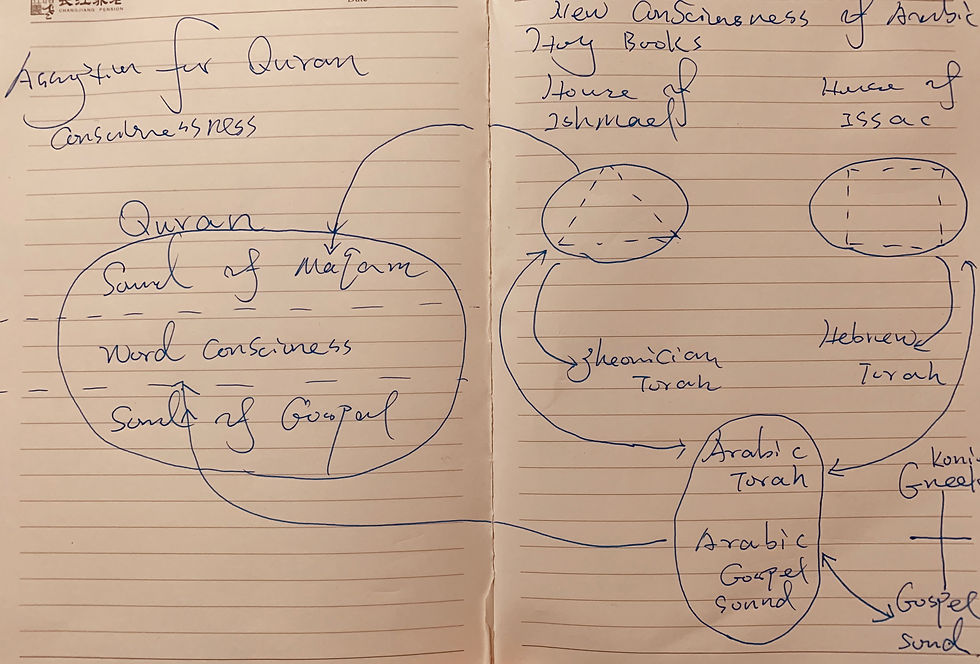 长江养老
CHANGJIANG PENSION
Date
for Quran
Consciuessness
Quran
Sound of Maqam
Word Consciness
Sound of Gospel
New Consciousness of Arabic
Holy Books
House of
Ishmael
House of
Issac
Torah
Hebrew
Torah
Arabic
Torah
Arabic
Gospel
sound
Koni
Greek
Gospel
sond